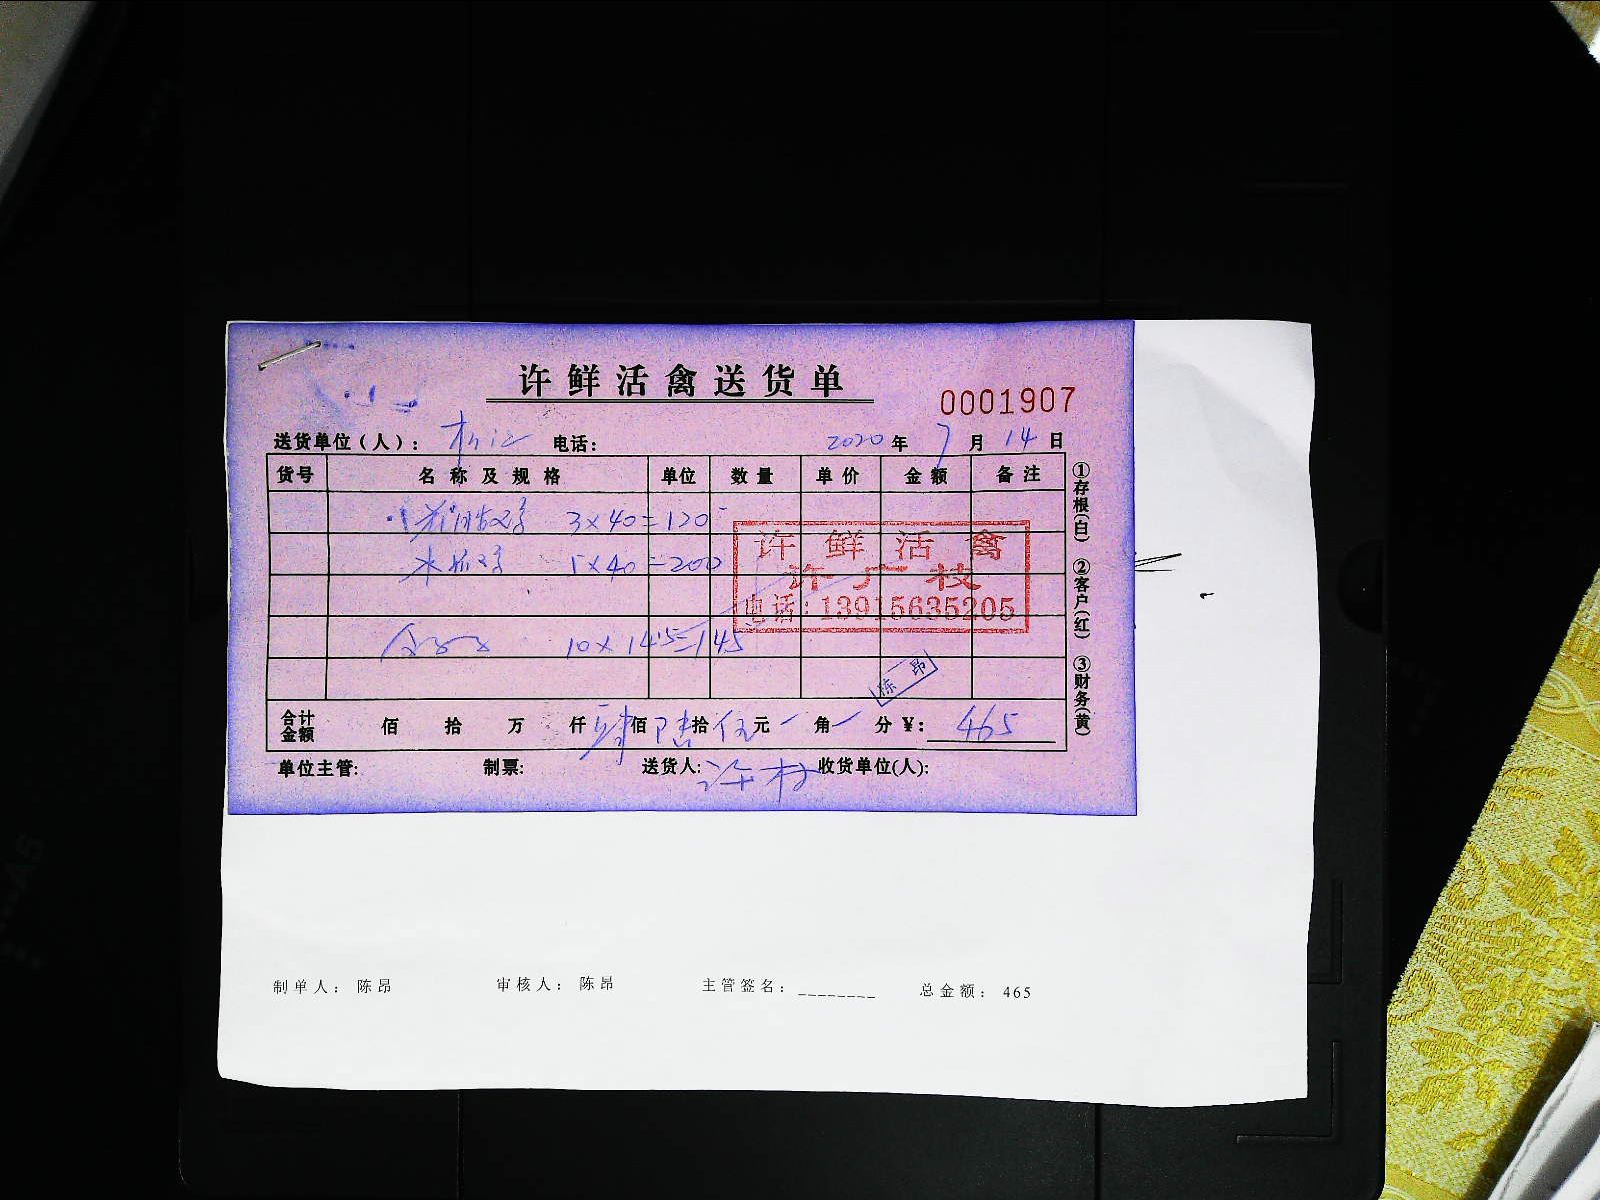 许鲜活禽送货单
0001907
送货单位(人): 电话: 2020年7月14日
货号 名称及规格 单位 数量 单价 金额 备注
3×40=120
5×40=200
10×14.5=145
许鲜活禽
许广枝
电话:13915635205
陈昂
合计金额 佰 拾 万 仟肆佰陆拾伍元 角 分 ¥: 465
单位主管: 制票: 送货人: 收货单位(人):
①存根(白) ②客户(红) ③财务(黄)
制单人: 陈昂 审核人: 陈昂 主管签名: ________ 总金额: 465